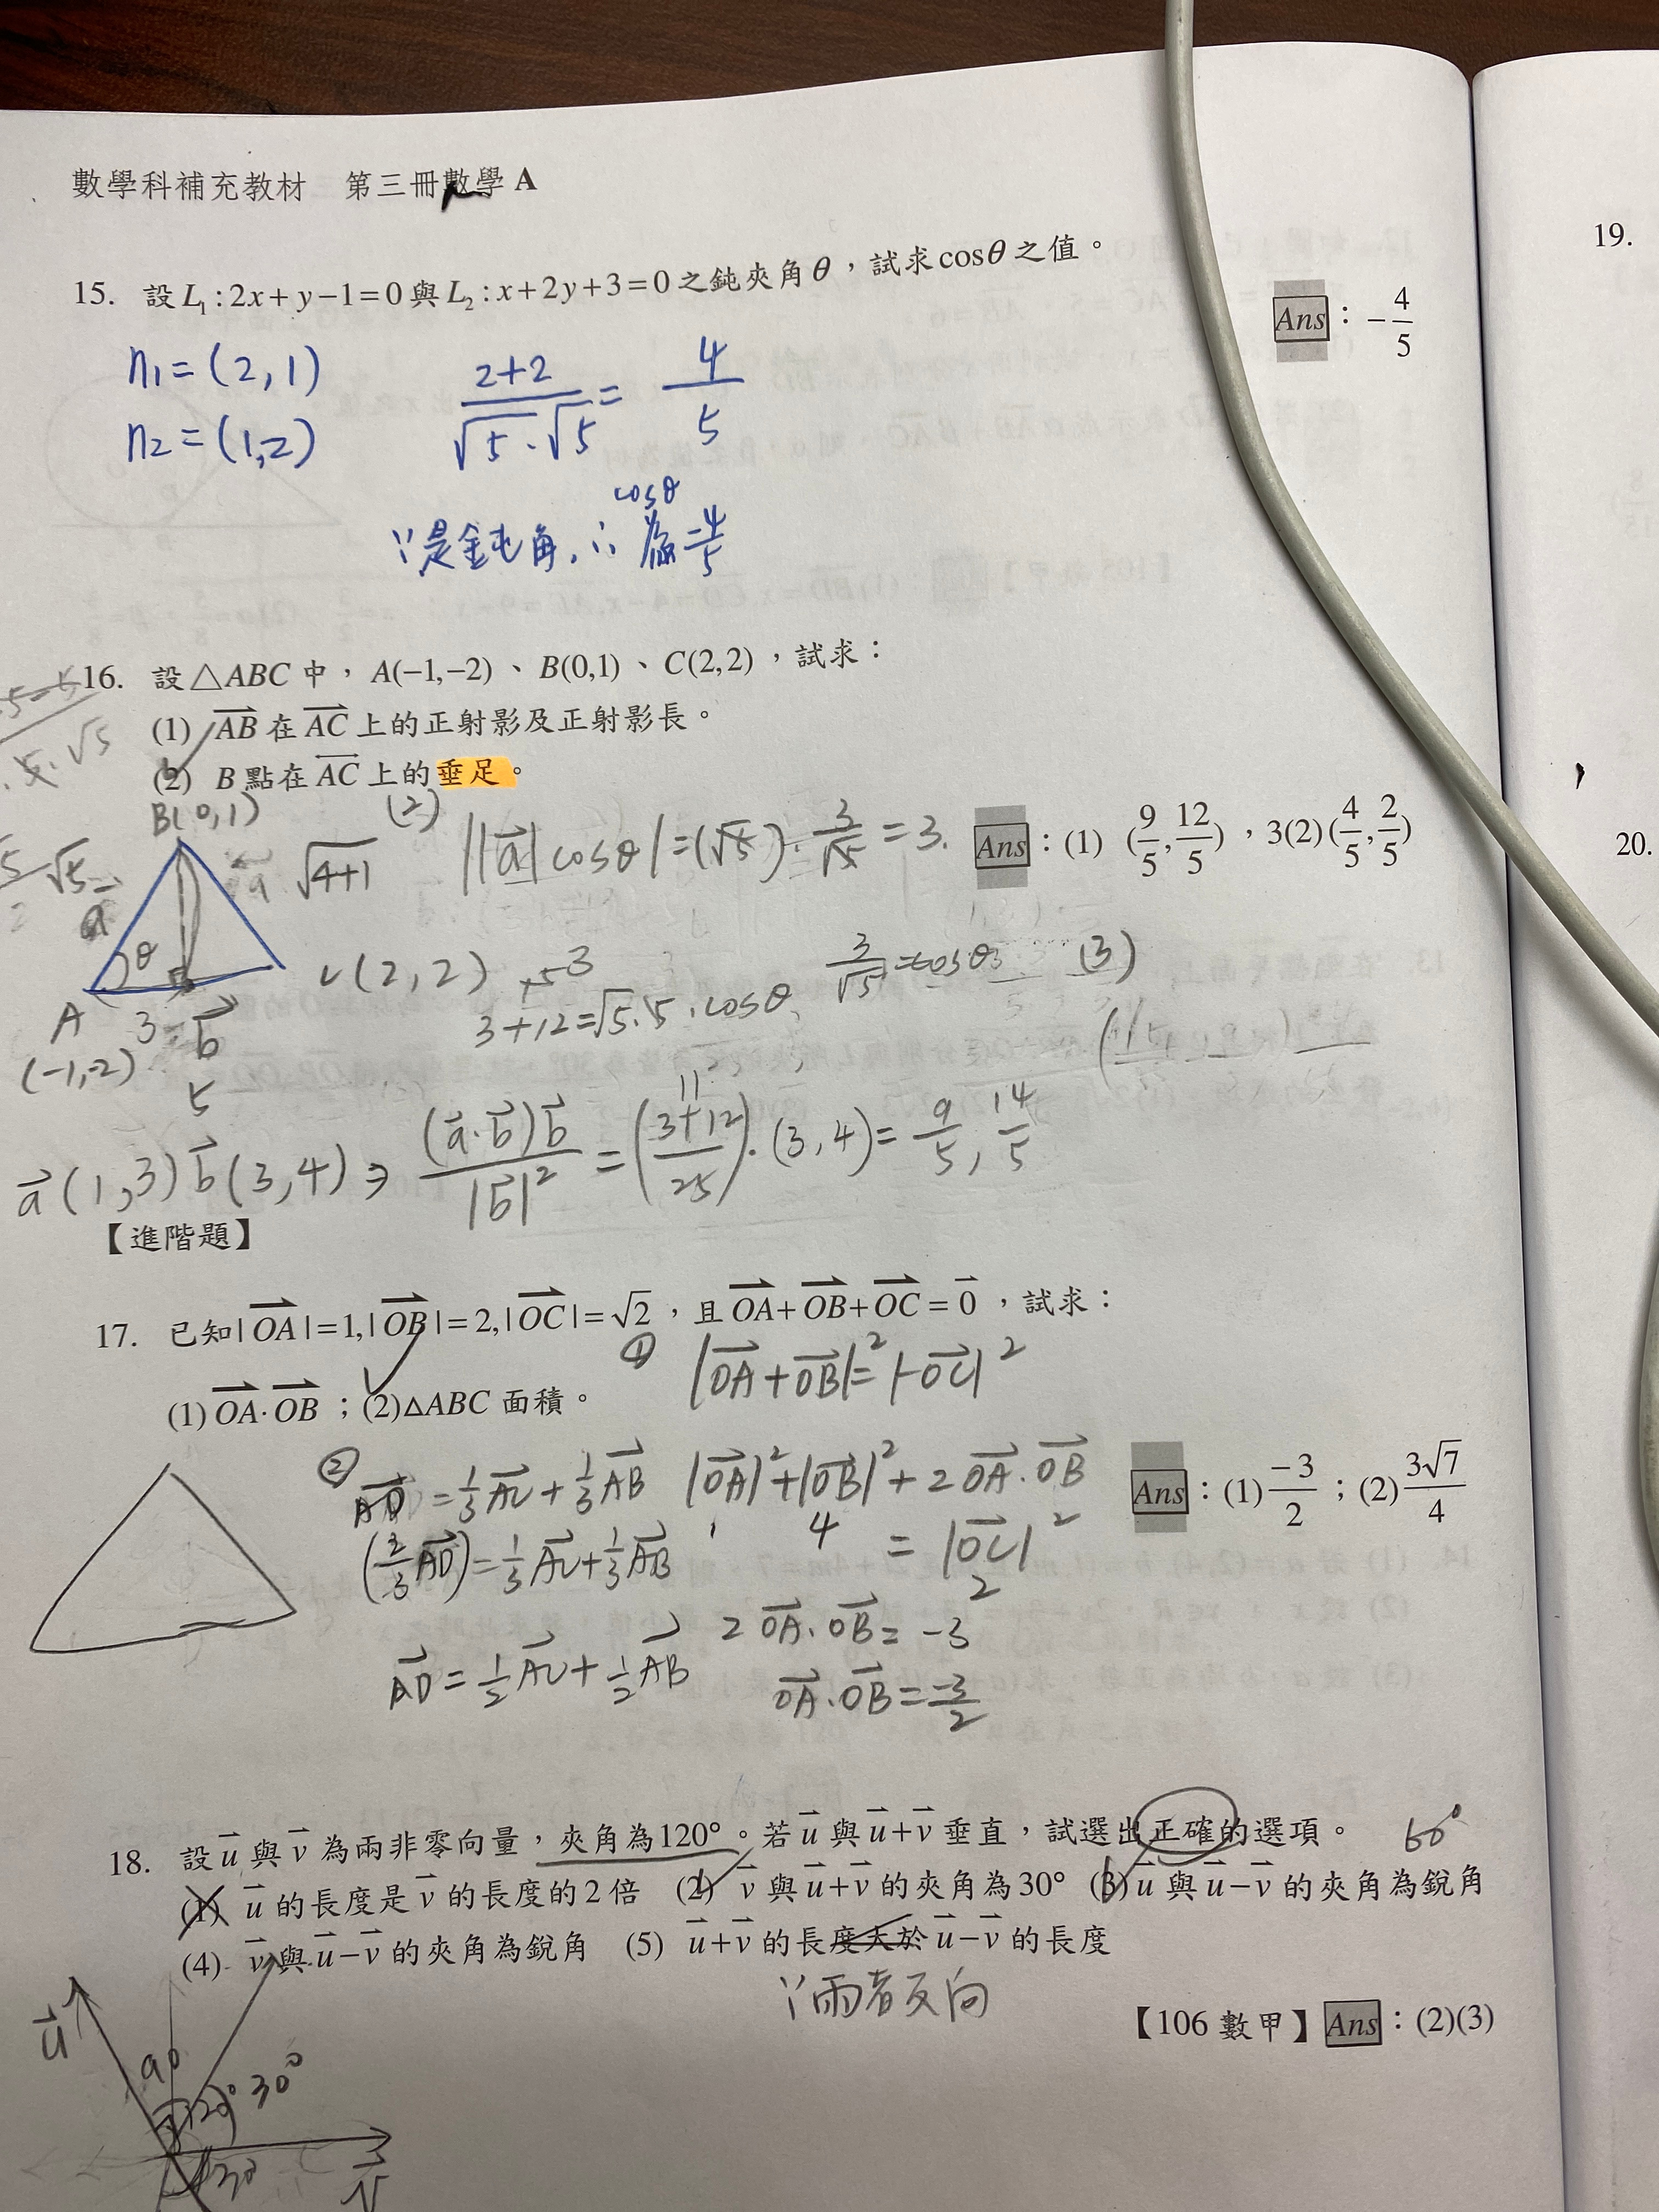 數學科補充教材 第三冊數學 A
19.
15. 設 L₁:2x+y−1=0 與 L₂:x+2y+3=0 之鈍夾角 θ，試求 cosθ 之值。
Ans：−4/5
n1=(2,1)
n2=(1,2)
(2+2)/(√5·√5) = 4/5
∵是鈍角,∴ cosθ 為 −4/5
16. 設△ABC 中，A(−1,−2)、B(0,1)、C(2,2)，試求：
(1) AB 在 AC 上的正射影及正射影長。
(2) B 點在 AC 上的垂足。
20.
Ans：(1) (9/5,12/5)，3(2)(4/5,2/5)
B(0,1)
(2) ||a|cosθ|=(√5)·3/√5=3.
√5 a √(4+1)
θ
(2,2)
3/√5=cosθ (3)
A 3 b
3+12=√5·5·cosθ
(-1,-2)
5
a(1,3) b(3,4) ⇒ (a·b)b/|b|² = ((3+12)/25)·(3,4)= 9/5, 14/5
【進階題】
17. 已知|OA|=1,|OB|=2,|OC|=√2，且 OA+OB+OC=0，試求：
(1) OA·OB；(2)△ABC 面積。
① |OA+OB|²=|-OC|²
Ans：(1) −3/2；(2) 3√7/4
② AD=1/3AC+1/3AB |OA|²+|OB|²+2OA·OB
1 4 =|OC|²
2
(2/3AD)=1/3AC+1/3AB
2OA·OB=-3
AD=1/2AC+1/2AB
OA·OB=-3/2
18. 設 u 與 v 為兩非零向量，夾角為120°。若 u 與 u+v 垂直，試選出正確的選項。 60°
(1) u 的長度是 v 的長度的 2 倍 (2) v 與 u+v 的夾角為30° (3) u 與 u−v 的夾角為銳角
(4) v 與 u−v 的夾角為銳角 (5) u+v 的長度大於 u−v 的長度
∵兩者反向
【106 數甲】Ans：(2)(3)
u
90 120° 30°
v